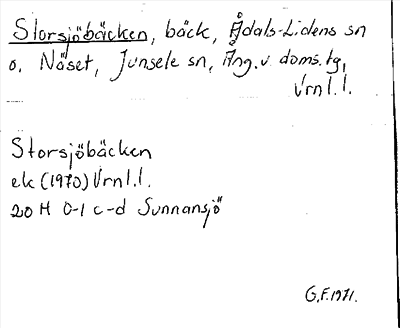 Storsjöbäcken, bäck, Ådals-Lidens sn
o. Näset, Junsele sn, Ång. v. doms. tg,
Vrnl. l.
Storsjöbäcken
ek (1970) Vrnl. l.
20 H 0-1 c-d Sunnansjö
G.F. 1971.